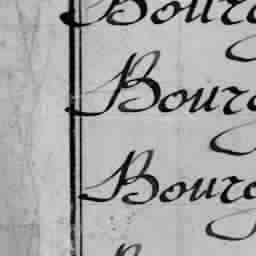 Bourg
Bourg
Bourg